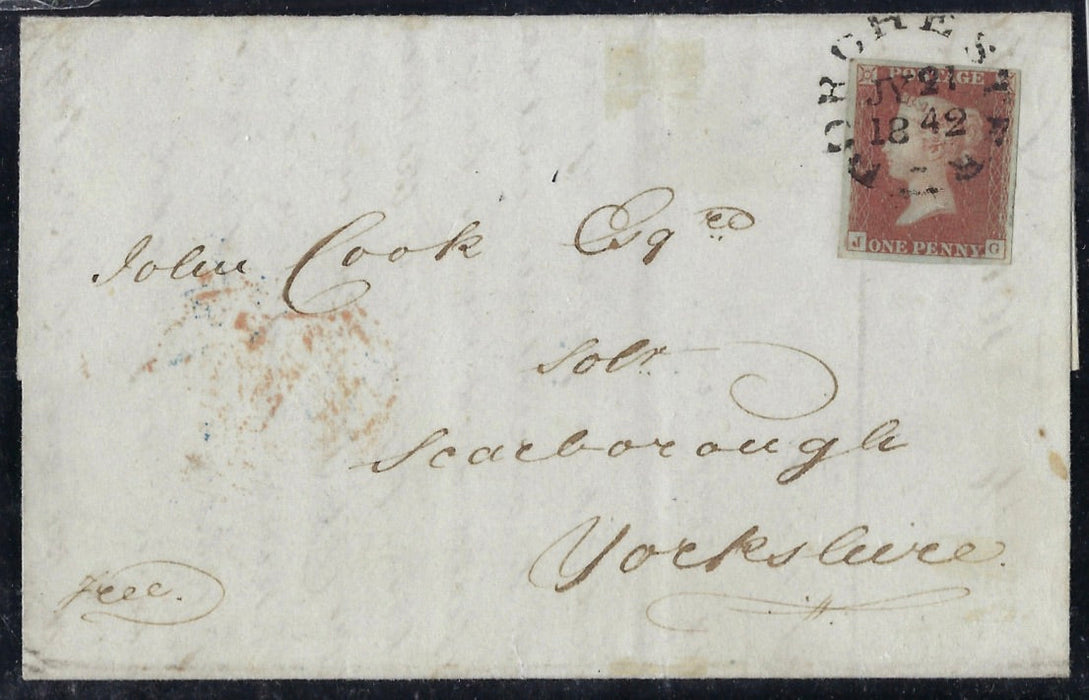 DORCHESTER
JY 21
1842
POSTAGE
J ONE PENNY G
John Cook Esqre
Solr
Scarborough
Yorkshire.
Free.